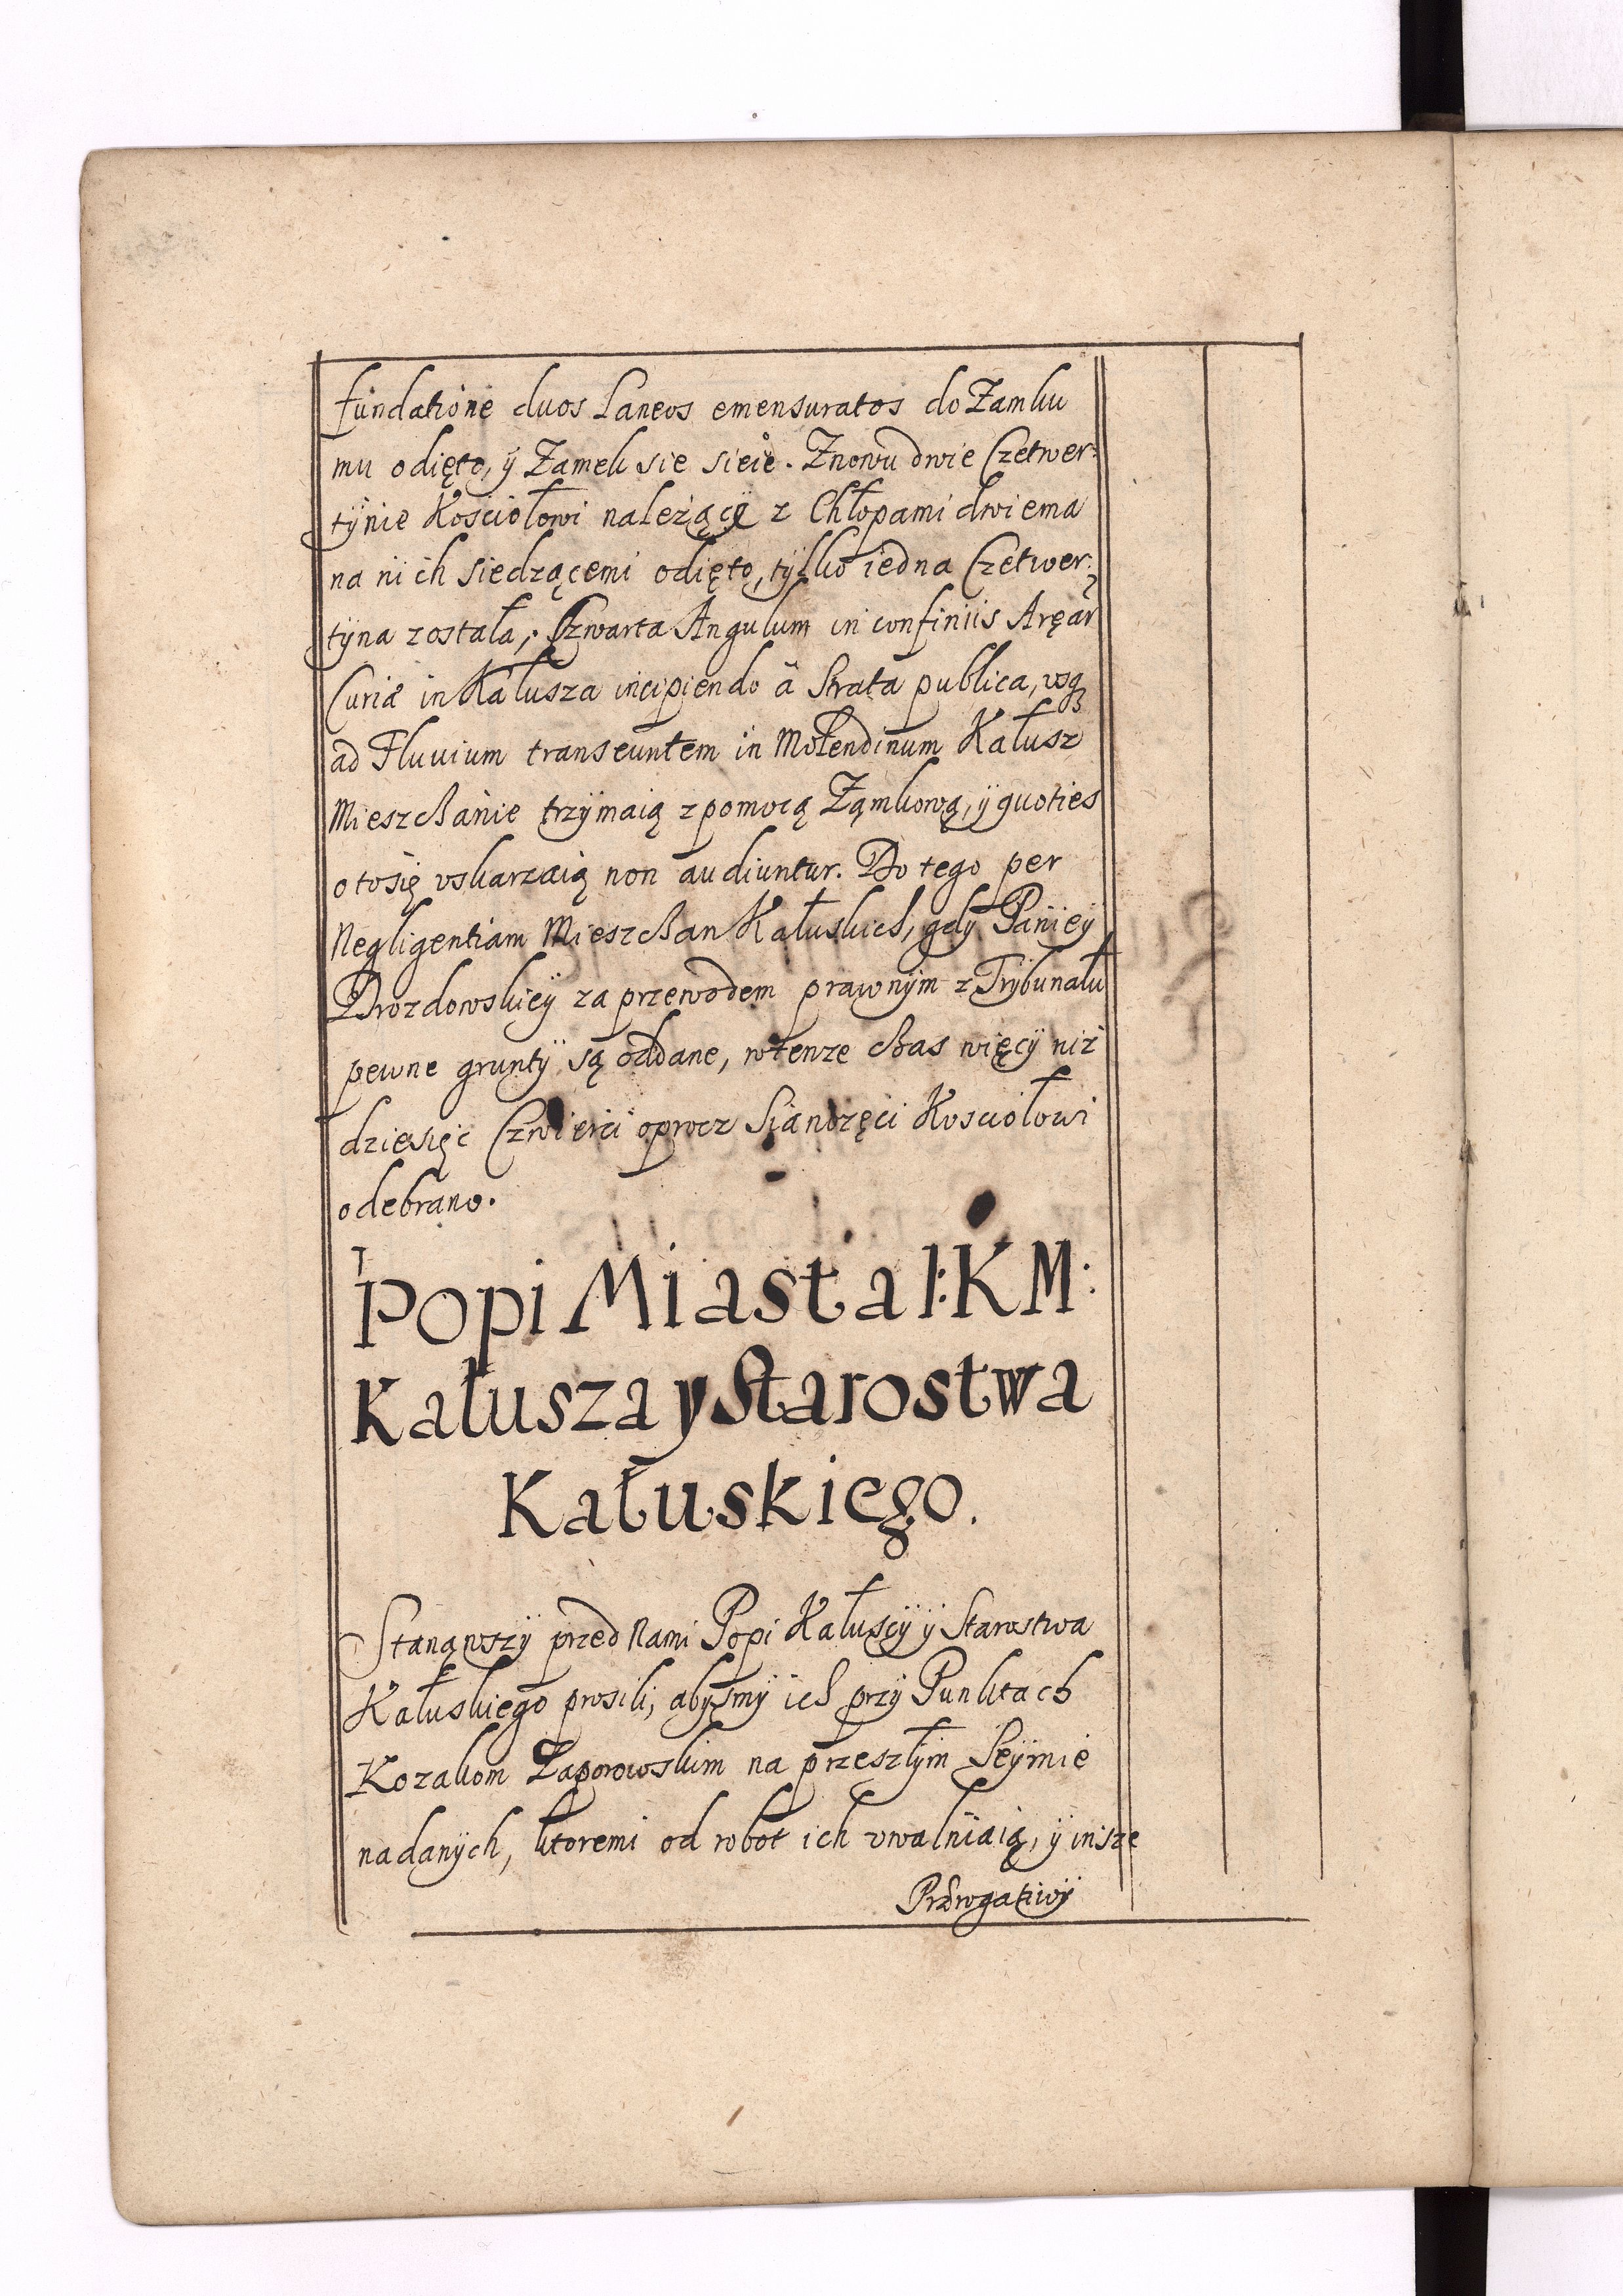 fundatione duos Laneos emensuratos do Zamku
mu odięto, ÿ Zamek sie sieie. Znowu dwie Czetwer:
tÿnie Kosciołowi nalezącÿ z Chłopami dwiema
na nich siedzącemi odięto, tÿlko iedna Czetwer:
tÿna została, Czwarta Angulum in confiniis Aręar
Curiæ in Kałusza incipiendo â Strata publica, vsq3
ad Fluuium transeuntem in Molendinum Kałusz
Mieszczanie trzÿmaią z pomocą Zamkową, ÿ quoties
o to się vskarzaią non audiuntur. Do tego per
Negligentiam Mieszczan Kałuskich, gdÿ Paniey
Drozdowskieÿ za przewodem prawnÿm z Trÿbunału
pewne gruntÿ są oddane, wtenze czas więcÿ niz
dziesięc Czwierci oprocz Sianozęci Kosciołowi
odebrano.
Popi Miasta I:K M:
Kałusza y Starostwa
Kałuskiego.
Stanąwszÿ przed Nami Popi Kałuscÿ ÿ Starostwa
Kałuskiego prosili, abÿsmÿ ich przÿ Punktach
Kozakom Zaporowskim na przeszłÿm Seÿmie
nadanÿch, ktoremi od robot ich vwalniaią, ÿ insze
Prærogatiwÿ